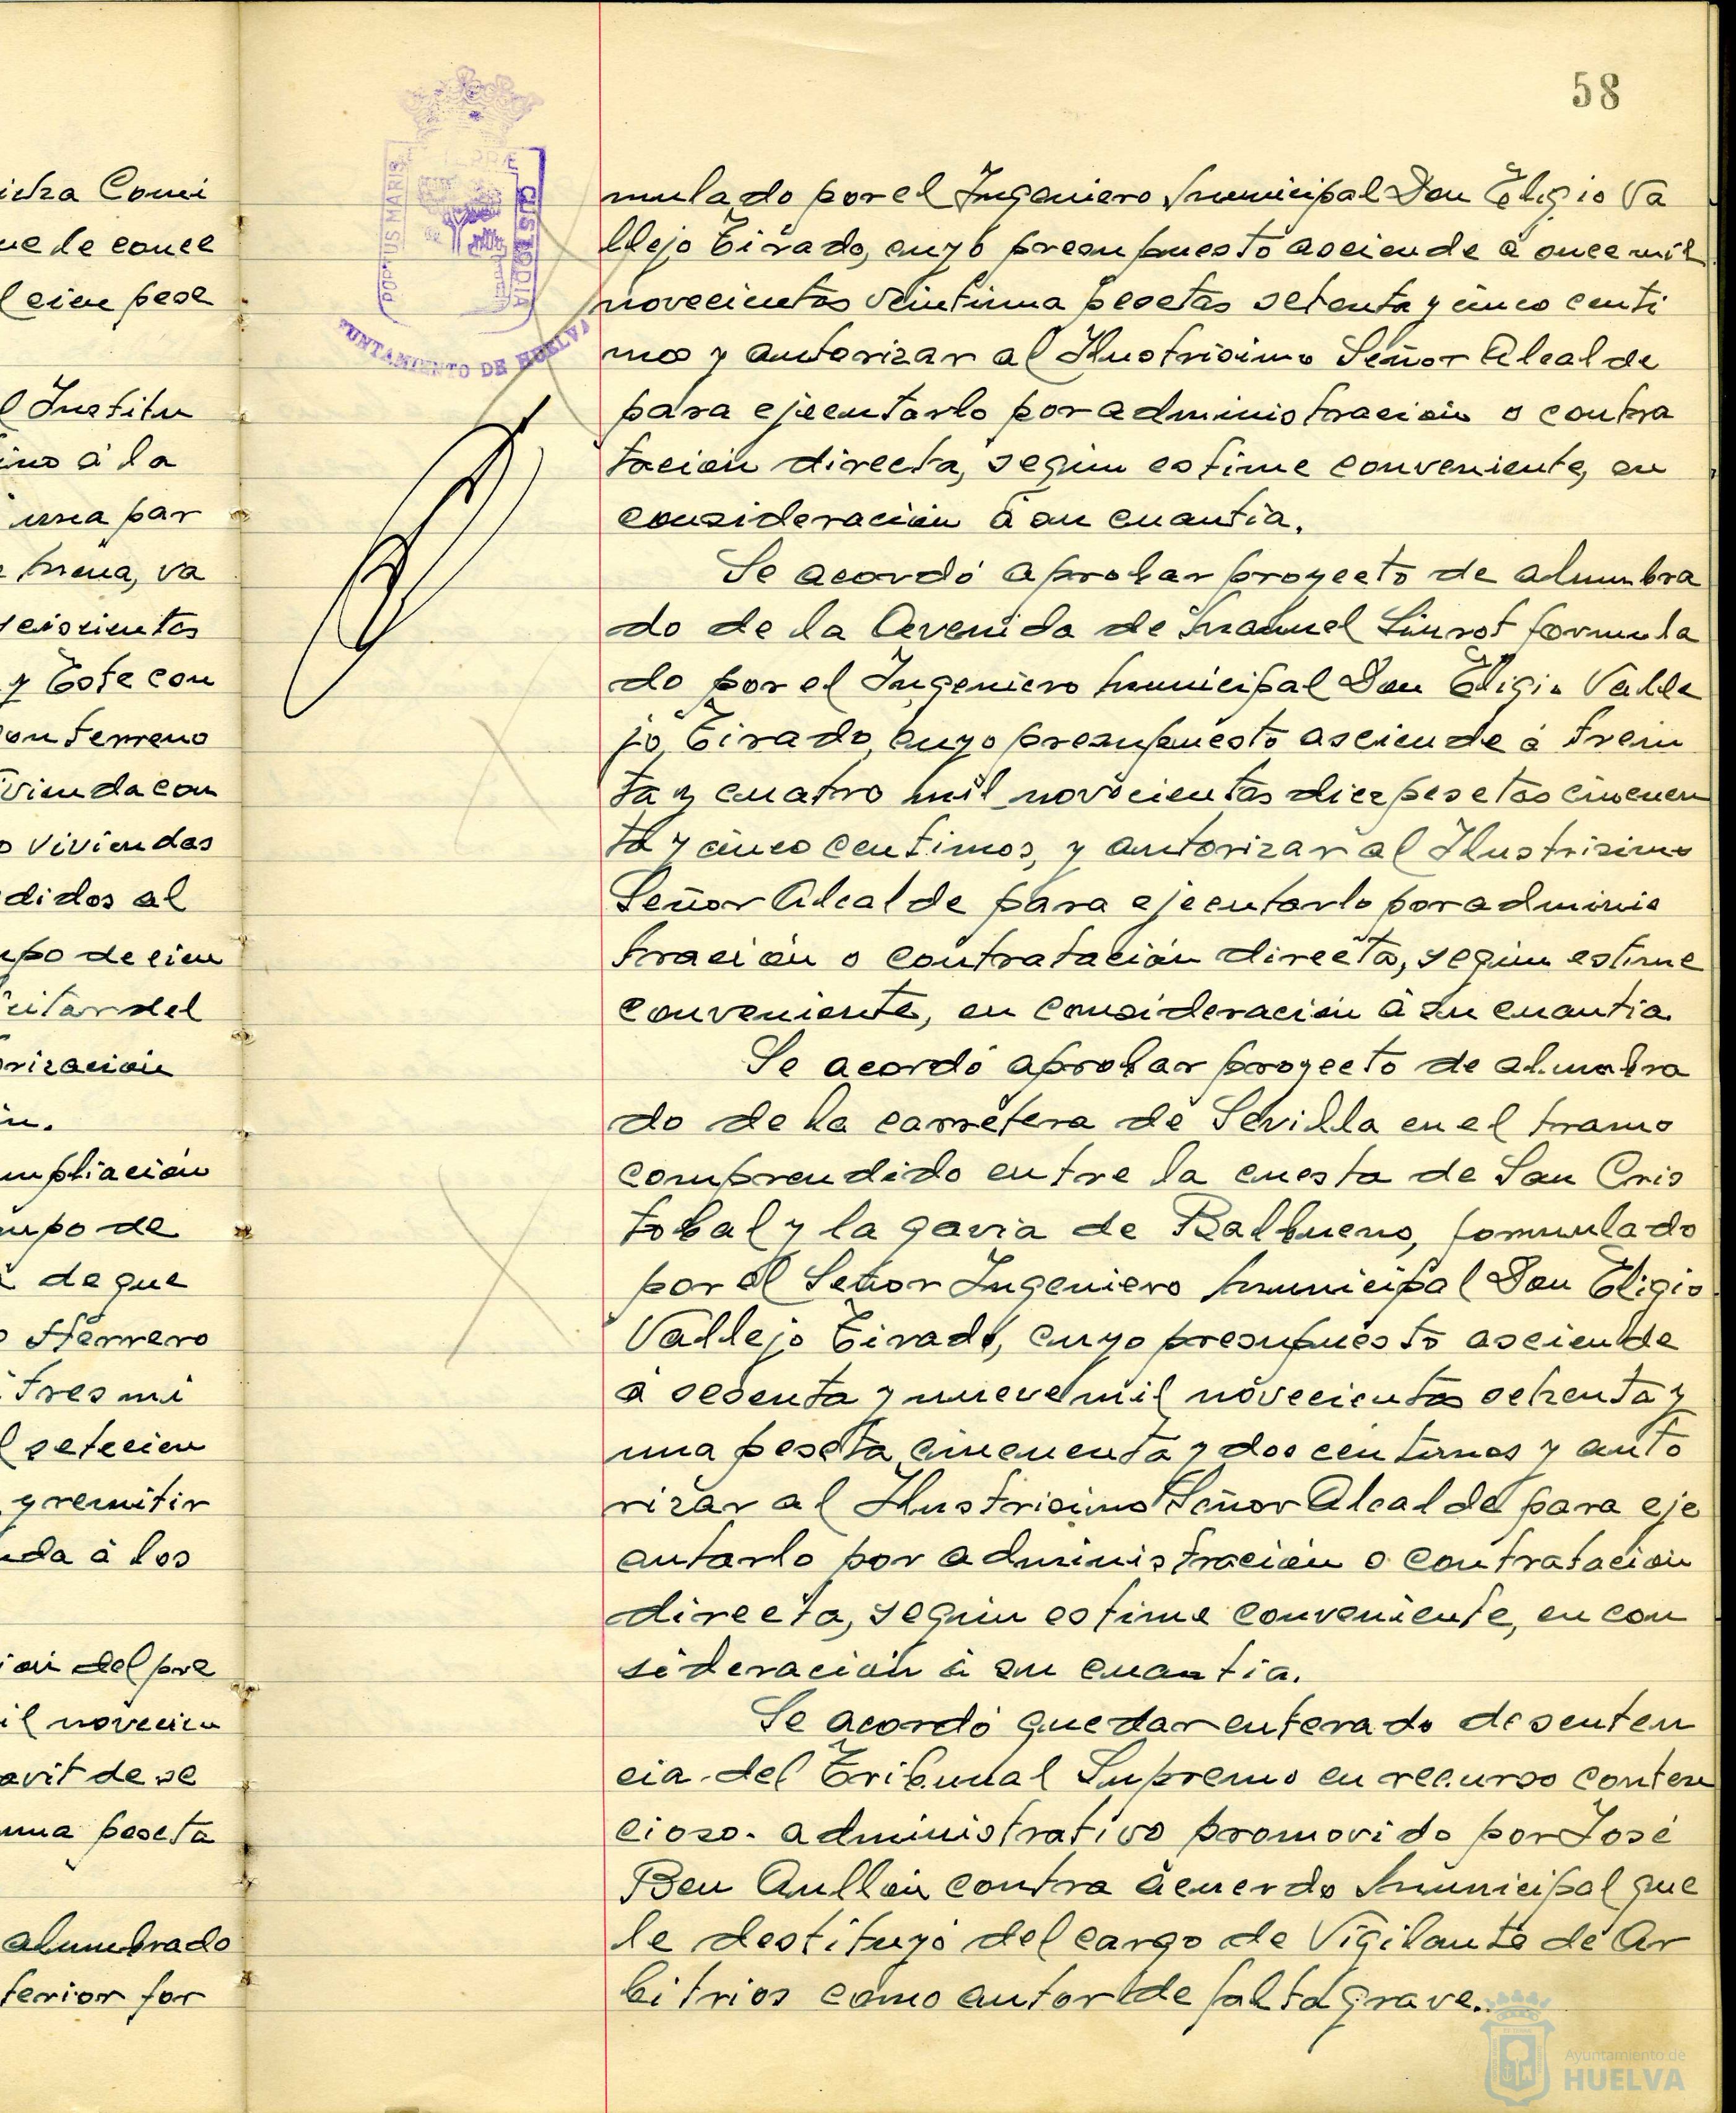 58
icha Comi
ue le conce
l cien pese
l Institu
ino á la
una par
buena, va
seiscientas
y Este con
on terreno
vienda con
o viviendas
didos al
upo de cien
citar del
rización
ón.
mpliación
upo de
á de que
o Herrero
tres mi
l setecien
y remitir
da á los
ion del pre
il novecien
avit de se
una peseta
alumbrado
terior for
PORTUS MARIS
TERRÆ
CUSTODIA
UNTAMIENTO DE HUELVA
mulado por el Ingeniero Municipal Don Eligio Va
llejo Tirado, cuyo presupuesto asciende á once mil
novecientas veintiuna pesetas setenta y cinco centi
mos y autorizar al Ilustrísimo Señor Alcalde
para ejecutarlo por administración o contra
tación directa, según estime conveniente, en
consideración á su cuantía.
Se acordó aprobar proyecto de alumbra
do de la Avenida de Manuel Siurot formula
do por el Ingeniero Municipal Don Eligio Valle
jo Tirado, cuyo presupuesto asciende á trein
ta y cuatro mil novecientas diez pesetas cincuen
ta y cinco centimos, y autorizar al Ilustrisimo
Señor Alcalde para ejecutarlo por adminis
tración o contratación directa, según estime
conveniente, en consideración á su cuantia
Se acordó aprobar proyecto de alumbra
do de la carretera de Sevilla en el tramo
comprendido entre la cuesta de San Cris
tobal y la gavia de Balbueno, formulado
por el Señor Ingeniero Municipal Don Eligio
Vallejo Tirado, cuyo presupuesto asciende
á sesenta y nueve mil novecientas ochenta y
una peseta cincuenta y dos centimos y auto
rizar al Ilustrisimo Señor Alcalde para eje
cutarlo por administración o contratación
directa, según estime conveniente, en con
sideración á su cuantia.
Se acordó quedar enterado de senten
cia del Tribunal Supremo en recurso conten
cioso-administrativo promovido por José
Beu Aullón contra acuerdo Municipal que
le destituyó del cargo de Vigilante de Ar
bitrios como autor de falta grave.
Ayuntamiento de
HUELVA